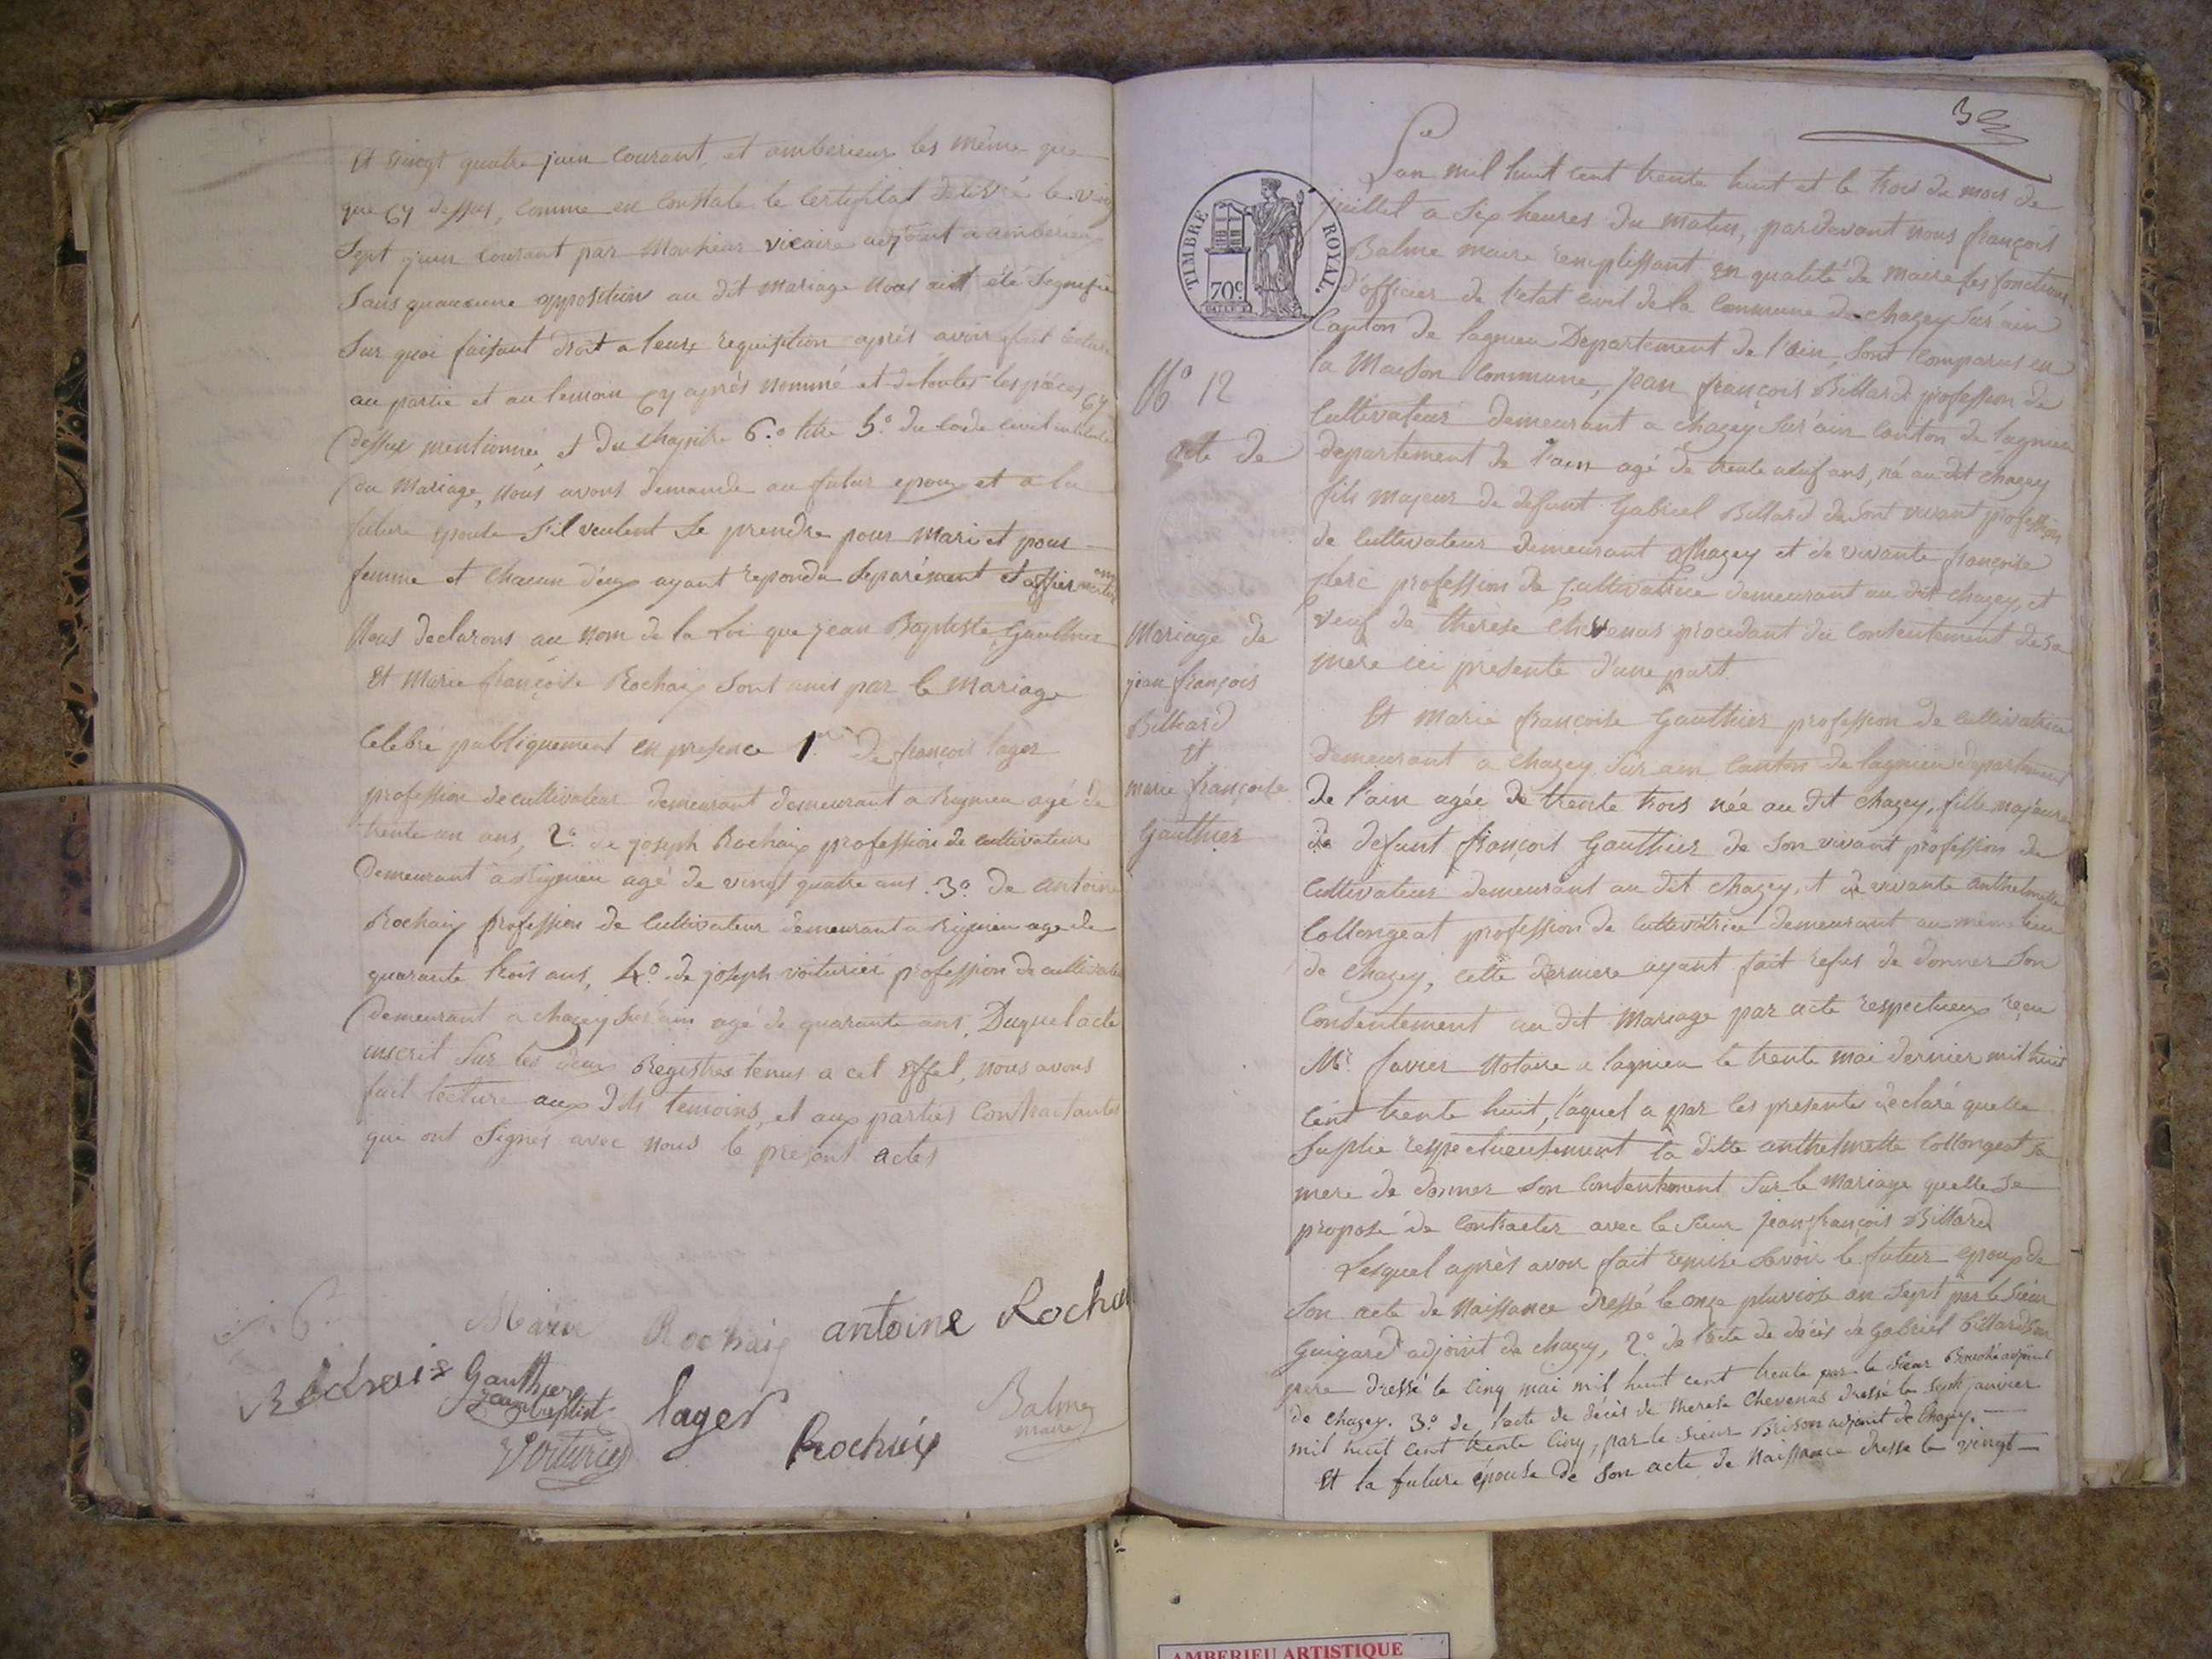 Et vingt quatre juin courant et amberieux les même que
que cy dessus, comme en constate le certifilat delivré le ving
sept juin courant par Monsieur vicaire adjoint a amberieux
Sans quaucune opposition au dit mariage nous ait été Signifié
Sur quoi faisant droit a leure requisition aprés avoir fait lecture
au partie et au temoin cy aprés nommé et de toutes les pièces cy
dessus mentionnée, et du chapitre 6.o titre 5.o du Code Civil intitulé
du Mariage, Nous avons demandé au futur epoux et a la
future epouse S'il veulent Se prendre pour mari et pour
femme et chacun d'eux ayant repondu Separément et affirmativem
Nous declarons au nom de la Loi que jean Baptiste Gauthier
Et Marie françoise Rochaix Sont unis par le Mariage
Celebré publiquement en presence 1. de françois lager
profession de cultivateur demeurant demeurant a Rignieu agé de
trente un ans, 2.o de joseph Rochaix profession de cultivateur
demeurant a Rignieu agé de vingt quatre ans. 3.o de antoine
Rochaix profession de Cultivateur demeurant a Rignieu age de
quarante trois ans, 4.o de joseph voiturier profession de cultivateu
demeurant a chazey Sur ain agé de quarante ans. Duquel acte
inscrit Sur les deux Registres tenus a cet Effet, nous avons
fait lecture aux dits temoins, et aux parties Contractantes
qui ont Signés avec nous le present actes
Marie Rochaix antoine Rocha
Gauthier
jean baptist
lager
Balme
maire
Voiturier
Rochaix
3
L'an mil huit cent trente huit et le trois du mois de
juillet a Six heures du matin, pardevant nous françois
Balme maire remplissant en qualité de maire les fonctions
d'officier de l'etat civil de la Commune de chazey Sur ain
Canton de lagnieu Departement de l'ain, Sont comparus en
la Maison Commune, jean françois Billard profession de
Cultivateur demeurant a chazey Sur ain canton de lagnieu
departement de l'ain agé de trente neuf ans, né au dit chazey
fils majeur de defunt Gabriel Billard de Son vivant profession
de Cultivateur demeurant a chazey et de vivante françoise
clerc profession de Cultivatrice demeurant au dit chazey, et
veuf de therèse chevenas procedant du Consentement de sa
mere ici presente d'une part.
Et Marie françoise Gauthier profession de cultivatrice
demeurant a chazey Sur ain Canton de lagnieu departement
de l'ain agée de trente trois née au dit chazey, fille majeure
de defunt françois Gauthier de Son vivant profession de
Cultivateur demeurant au dit chazey, et de vivante anthelmette
Collongeat profession de Cultivatrice demeurant au même lieu
de chazey, cette derniere ayant fait refus de donner Son
Consentement au dit Mariage par acte respectueux reçu
Me. favier Notaire a lagnieu le trente mai dernier mil huit
cent trente huit, laquel a par les presentes declaré quelle
Suplie respectueusement la ditte anthelmette Collongeat sa
mere de donner Son Consentement Sur le Mariage quelle se
propose de Contracter avec le Sieur jean françois Billard
Lesquel aprés avoir fait remise Savoir le futur epoux de
Son acte de Naissance dressé le onze pluviose an Sept par le Sieur
Guigard adjoint de chazey, 2.o de l'acte de décès de Gabriel billard Son
pere dressé le Cinq mai mil huit cent trente par le Sieur Brouché adjoint
de chazey. 3.o de l'acte de décès de therese chevenas dressé le Sept janvier
mil huit cent trente Cinq, par le Sieur Brison adjoint de Chazey.
Et la future épouse de Son acte de Naissance dressé le vingt
TIMBRE ROYAL.
70c
No 12
acte de
Mariage de
jean françois
Billiard
et
marie françoise
Gauthier
AMBERIEU ARTISTIQUE